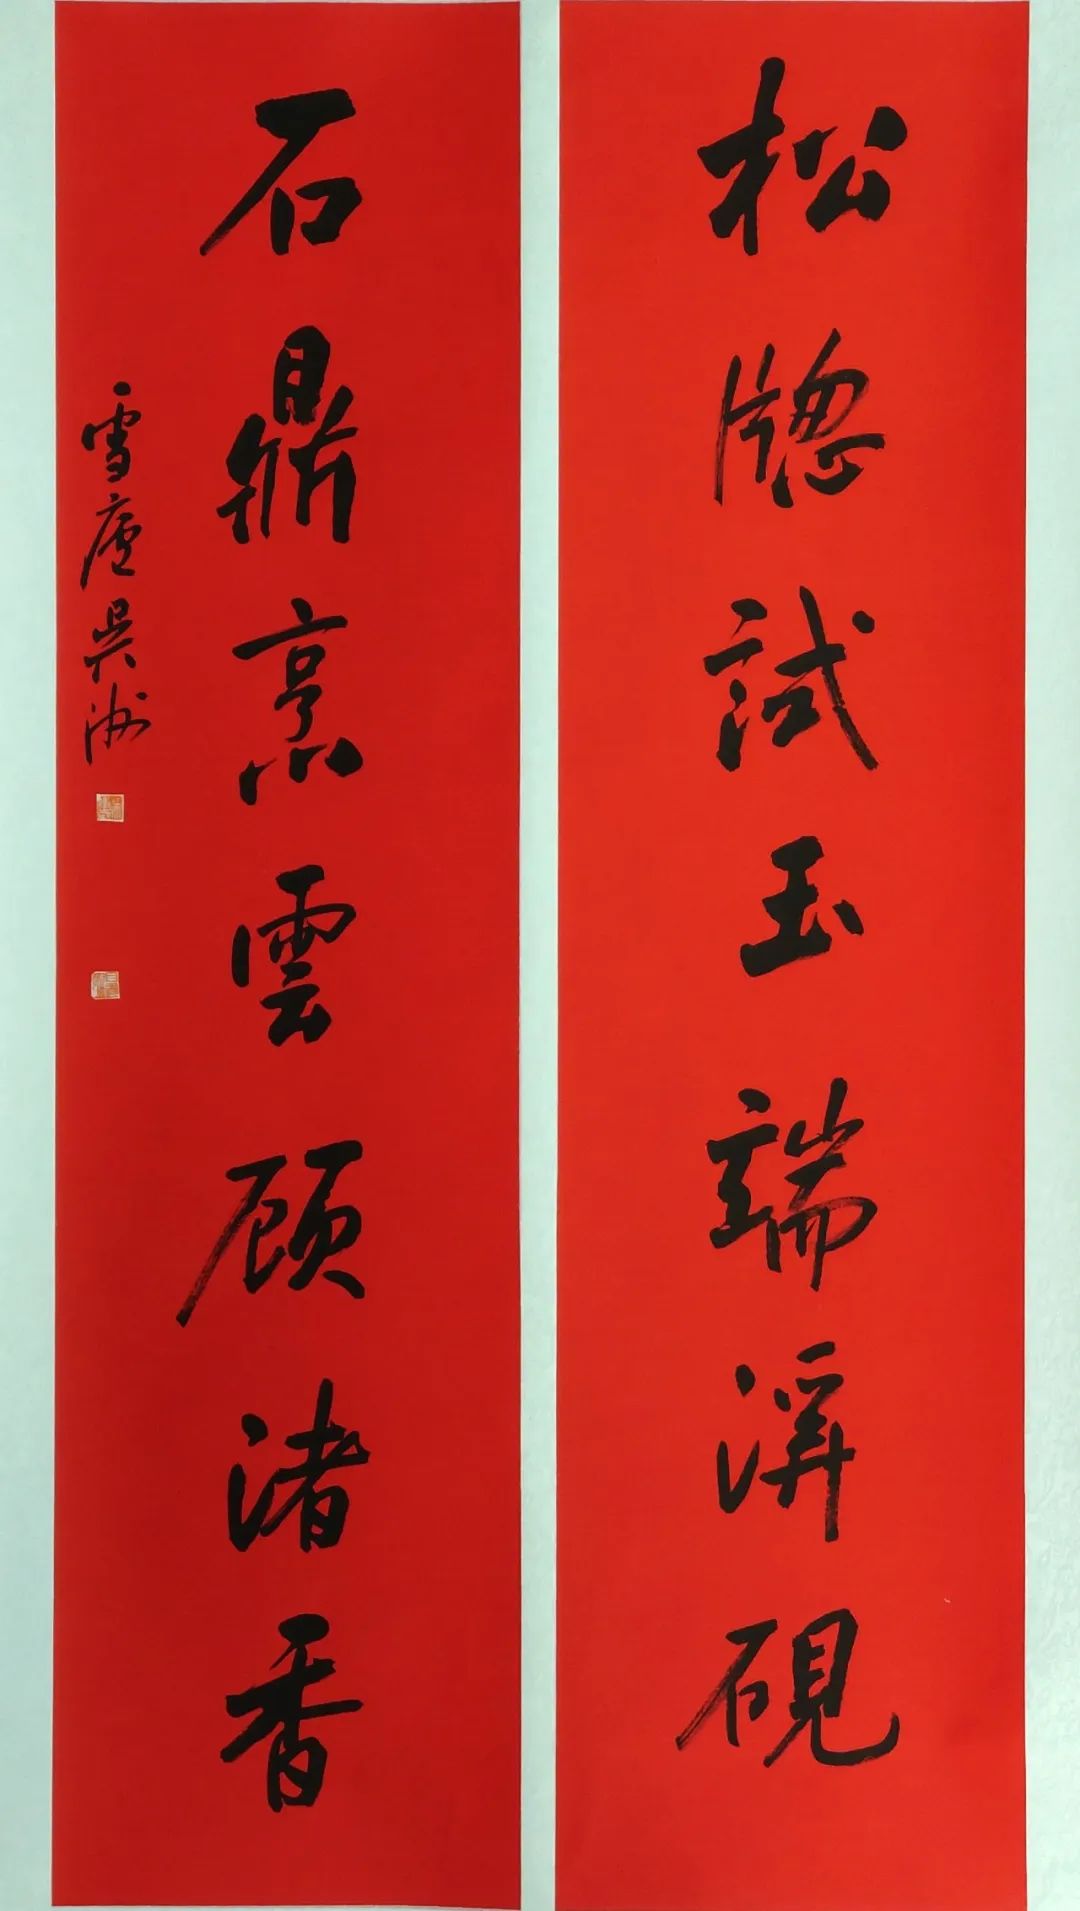 松牕試玉端溪硯
石鼎烹雲顧渚香
雪廬吳洲